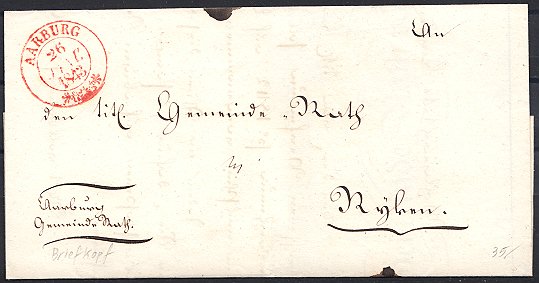 AARBURG
26
1842
An
den titl. Gemeinde-Rath
in
Ryken.
Aarburg
Gemeinde Rath.
Briefkopf
35/